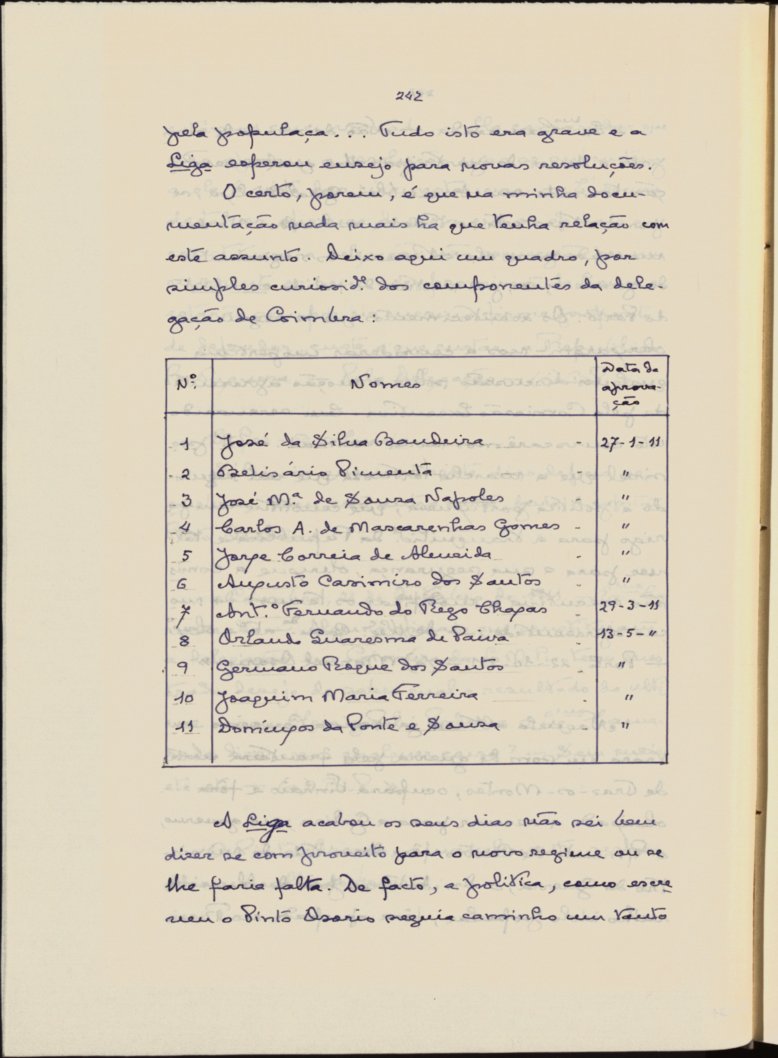 242
pela populaça... Tudo isto era grave e a
Liga esperou ensejo para novas resoluções.
O certo, porem, é que na minha docu-
mentação nada mais ha que tenha relação com
este assunto. Deixo aqui um quadro, por
simples curiosid.e dos componentes da dele-
gação de Coimbra:
Nº. Nomes Data da aprova-ção
1 José da Silva Bandeira - 27-1-11
2 Belisário Pimenta - "
3 José M.ª de Sousa Napoles - "
4 Carlos A. de Mascarenhas Gomes - "
5 Jorge Correia de Almeida - "
6 Augusto Casimiro dos Santos - "
7 Ant.º Fernando do Rego Chagas - 29-3-11
8 Orlando Guaresma de Paiva - 13-5-"
9 Germano Roque dos Santos - "
10 Joaquim Maria Ferreira - "
11 Domingos da Ponte e Sousa "
A Liga acabou os seus dias não sei bem
dizer se com proveito para o novo regime ou se
lhe faria falta. De facto, a politica, como escre-
veu o Pinto Osorio seguia caminho um tanto